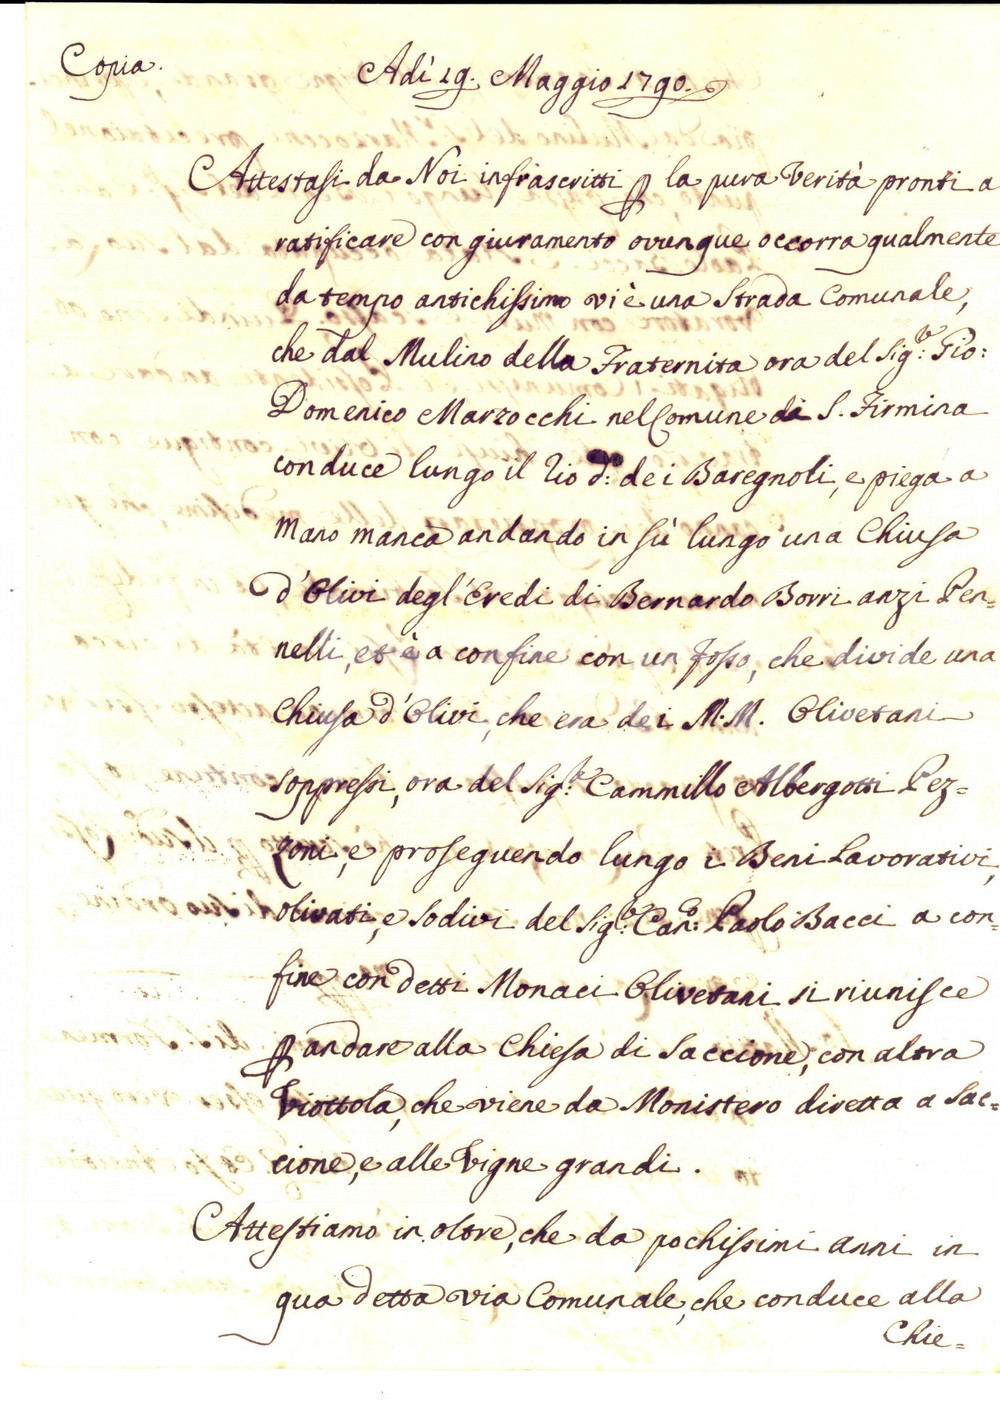 Copia.
Adì 19. Maggio 1790.
Attestasi da Noi infrascritti p la pura Verità pronti a
ratificare con giuramento ovunque occorra qualmente
da tempo antichissimo vi è una Strada Comunale,
che dal Mulino della Fraternita ora del Sig:e Gio:
Domenico Marzocchi nel Comune di S. Firmina
conduce lungo il Rio d:o dei Baregnoli, e piega a
mano manca andando in sù lungo una Chiusa
d'Olivi degl'Eredi di Bernardo Borri anzi Pen=
nelli, et è a confine con un fosso, che divide una
Chiusa d'Olivi, che era dei M.M. Olivetani
soppressi, ora del Sig:e Cammillo Albergotti Pez=
zoni, e proseguendo lungo i Beni Lavorativi,
olivati, e sodivi del Sig:e Can:o Paolo Bacci a con=
fine con detti Monaci Olivetani si riunisce
p andare alla Chiesa di Saccione, con altra
Viottola, che viene da Monistero diretta a Sac=
cione, e alle Vigne grandi.
Attestiamo in oltre, che da pochissimi anni in
qua detta via Comunale, che conduce alla
Chie=